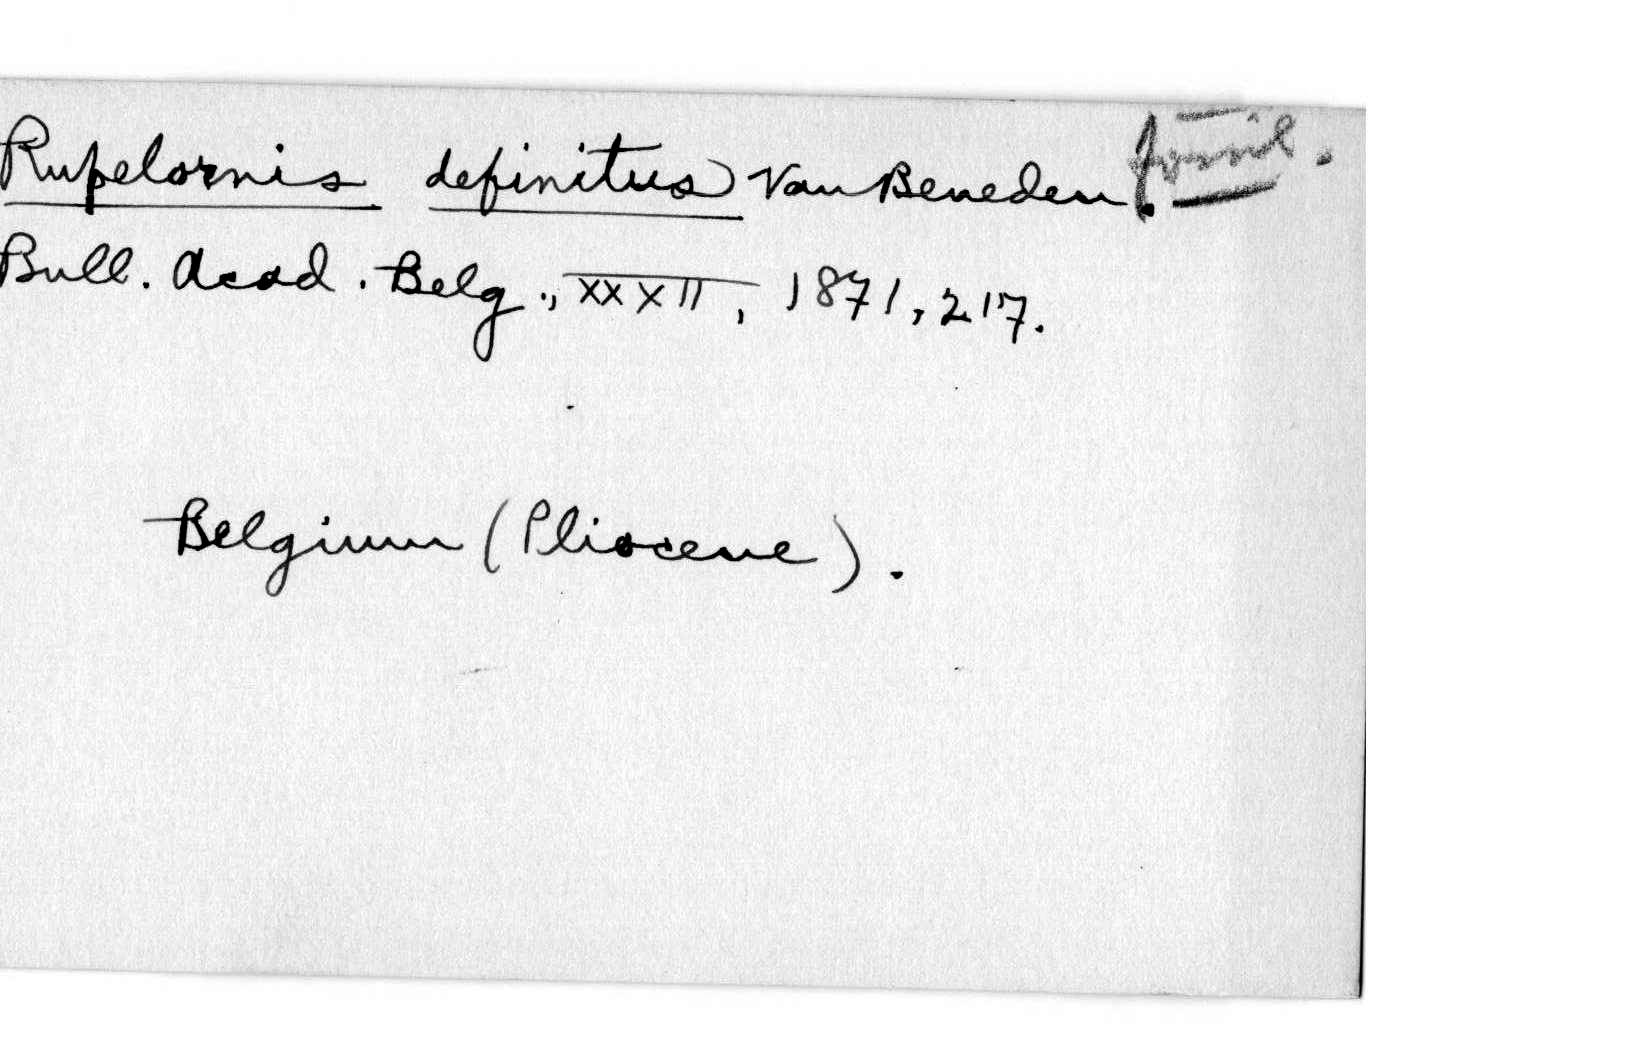 Rupelornis definitus Van Beneden. fossil.
Bull. Acad. Belg., XXXII, 1871, 217.
Belgium (Pliocene).